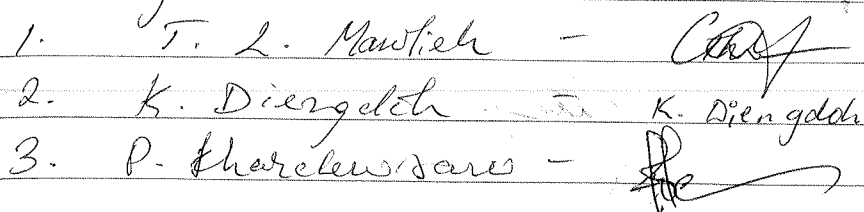 1. T. L. Mawlieh -
2. K. Diengdoh - K. Diengdoh
3. P. Kharchewsaw -